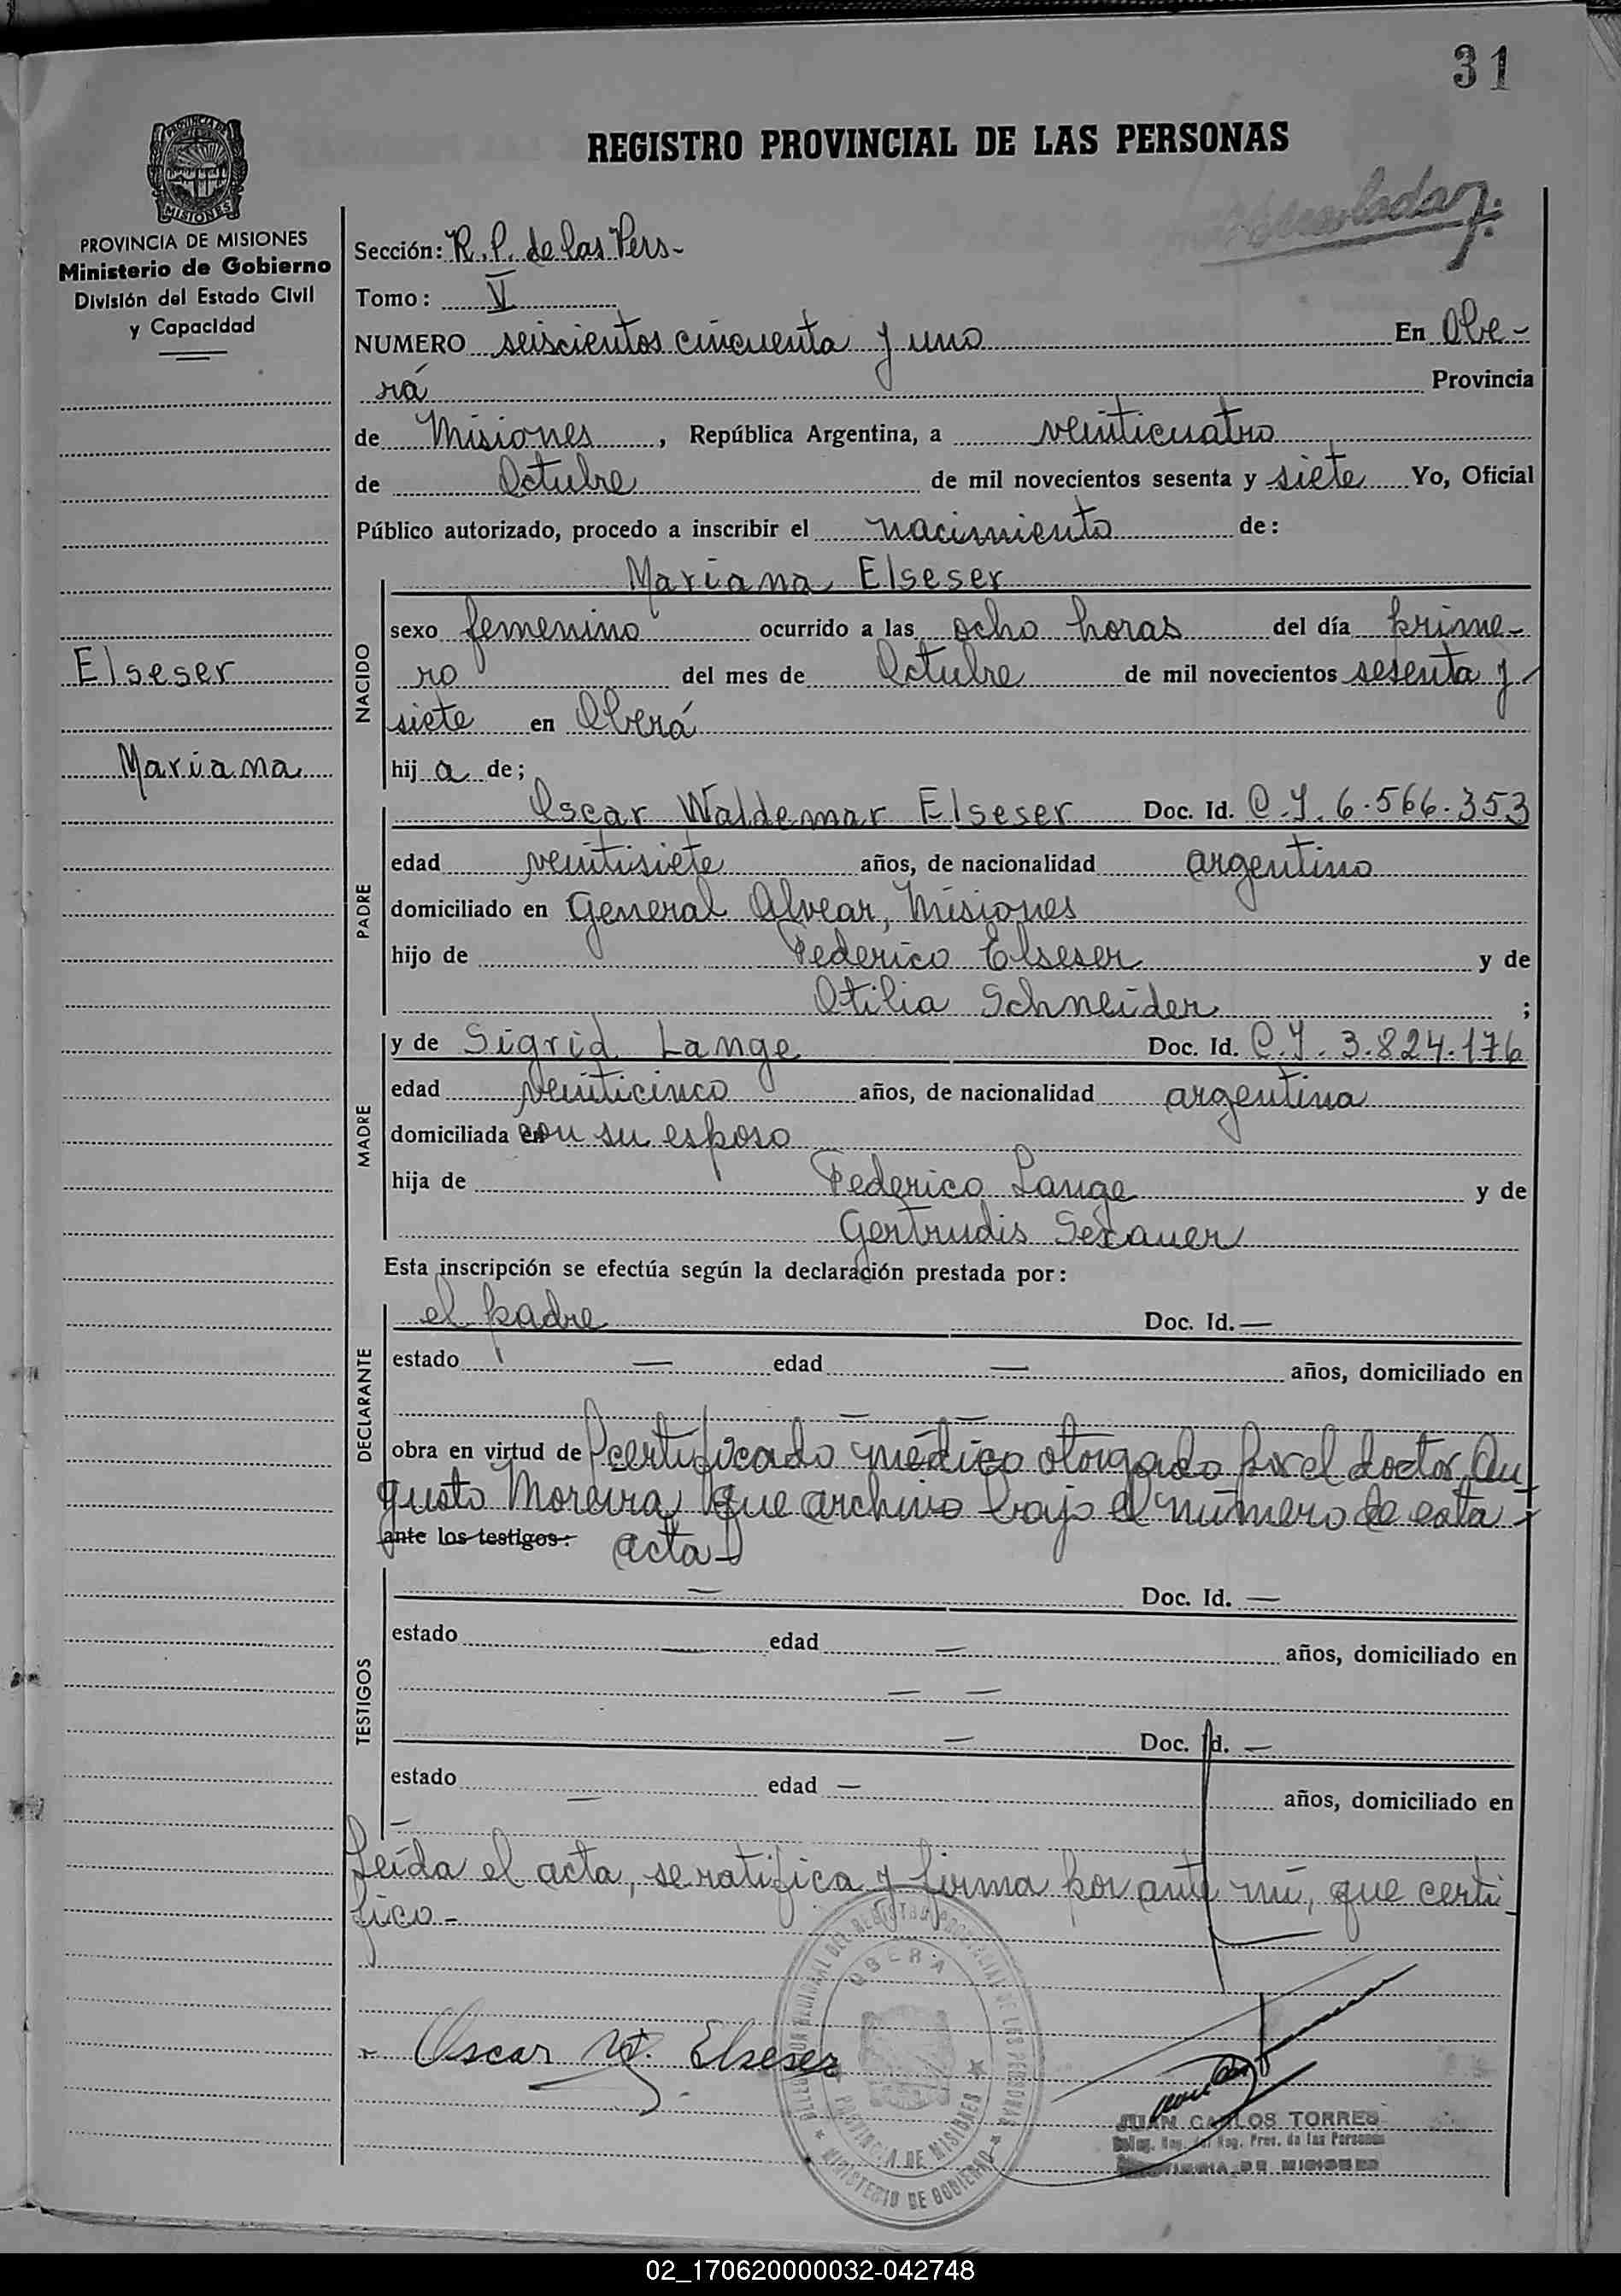 31
REGISTRO PROVINCIAL DE LAS PERSONAS
PROVINCIA DE MISIONES
Ministerio de Gobierno
División del Estado Civil
y Capacidad
Elseser
Mariana
Sección: R. P. de las Pers-
Tomo: V
NUMERO seiscientos cincuenta y uno En Obe-
rá Provincia
de Misiones, República Argentina, a veinticuatro
de Octubre de mil novecientos sesenta y siete Yo, Oficial
Público autorizado, procedo a inscribir el nacimiento de:
NACIDO
Mariana Elseser
sexo femenino ocurrido a las ocho horas del día prime-
ro del mes de Octubre de mil novecientos sesenta y
siete en Oberá
hij a de;
PADRE
Oscar Waldemar Elseser Doc. Id. C.I. 6.566.353
edad veintisiete años, de nacionalidad argentino
domiciliado en General Alvear, Misiones
hijo de Federico Elseser y de
Otilia Schneider ;
MADRE
y de Sigrid Lange Doc. Id. C.I. 3.824.176
edad veinticinco años, de nacionalidad argentina
domiciliada en con su esposo
hija de Federico Lange y de
Gertrudis Sexauer
Esta inscripción se efectúa según la declaración prestada por:
DECLARANTE
el padre Doc. Id. —
estado — edad — años, domiciliado en
— —
obra en virtud de certificado médico otorgado por el doctor Au-
gusto Moreira que archivo bajo el número de esta
ante los testigos: acta-
TESTIGOS
— Doc. Id. —
estado — edad — años, domiciliado en
— —
— Doc. Id. —
estado — edad — años, domiciliado en
—
Leída el acta, se ratifica y firma por ante mí, que certi-
fico-
Oscar W. Elseser
DELEGACION REGIONAL DEL REGISTRO PROVINCIAL DE LAS PERSONAS
OBERA
PROVINCIA DE MISIONES
MINISTERIO DE GOBIERNO
JUAN CARLOS TORRES
Deleg. Reg. del Reg. Prov. de las Personas
PROVINCIA DE MISIONES
02_170620000032-042748